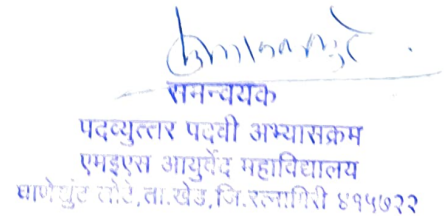 समन्वयक
पदव्युत्तर पदवी अभ्यासक्रम
एमइएस आयुर्वेद महाविद्यालय
घाणेखुंट लोटे, ता.खेड, जि.रत्नागिरी ४१५७२२